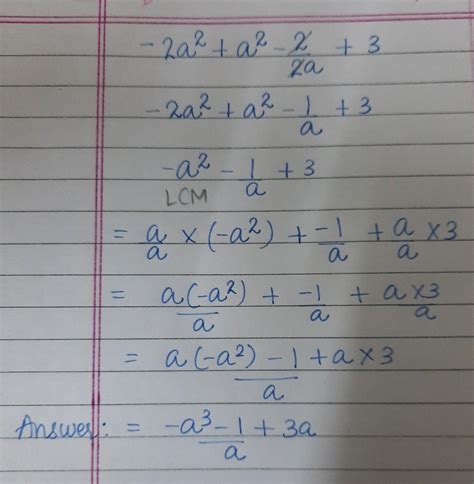 -2a² + a² - 2/2a + 3
-2a² + a² - 1/a + 3
-a² - 1/a + 3
LCM
= a/a × (-a²) + -1/a + a/a × 3
= a(-a²)/a + -1/a + a×3/a
= a(-a²) - 1 + a × 3/a
Answer: = -a³ - 1 + 3a/a